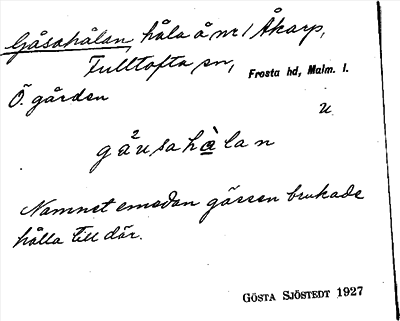 Gåsahålan, håla å nr 1 Åkarp,
Fulltofta sn, Frosta hd, Malm. l.
Ö. gården u.
gåusahålan
Namnet emedan gässen brukade
hålla till där.
GÖSTA SJÖSTEDT 1927